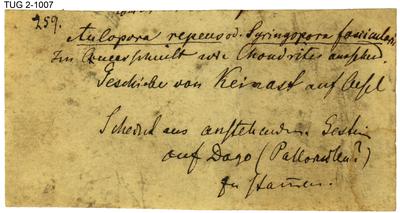 TUG 2-1007
259.
Aulopora repens od. Syringopora fascicularis
Im Querschnitt wie Chondrites aussehend.
Geschiebe von Keinast auf Oesel
Scheint aus anstehendem Gestein
auf Dago (Pallokülla?)
zu stammen.